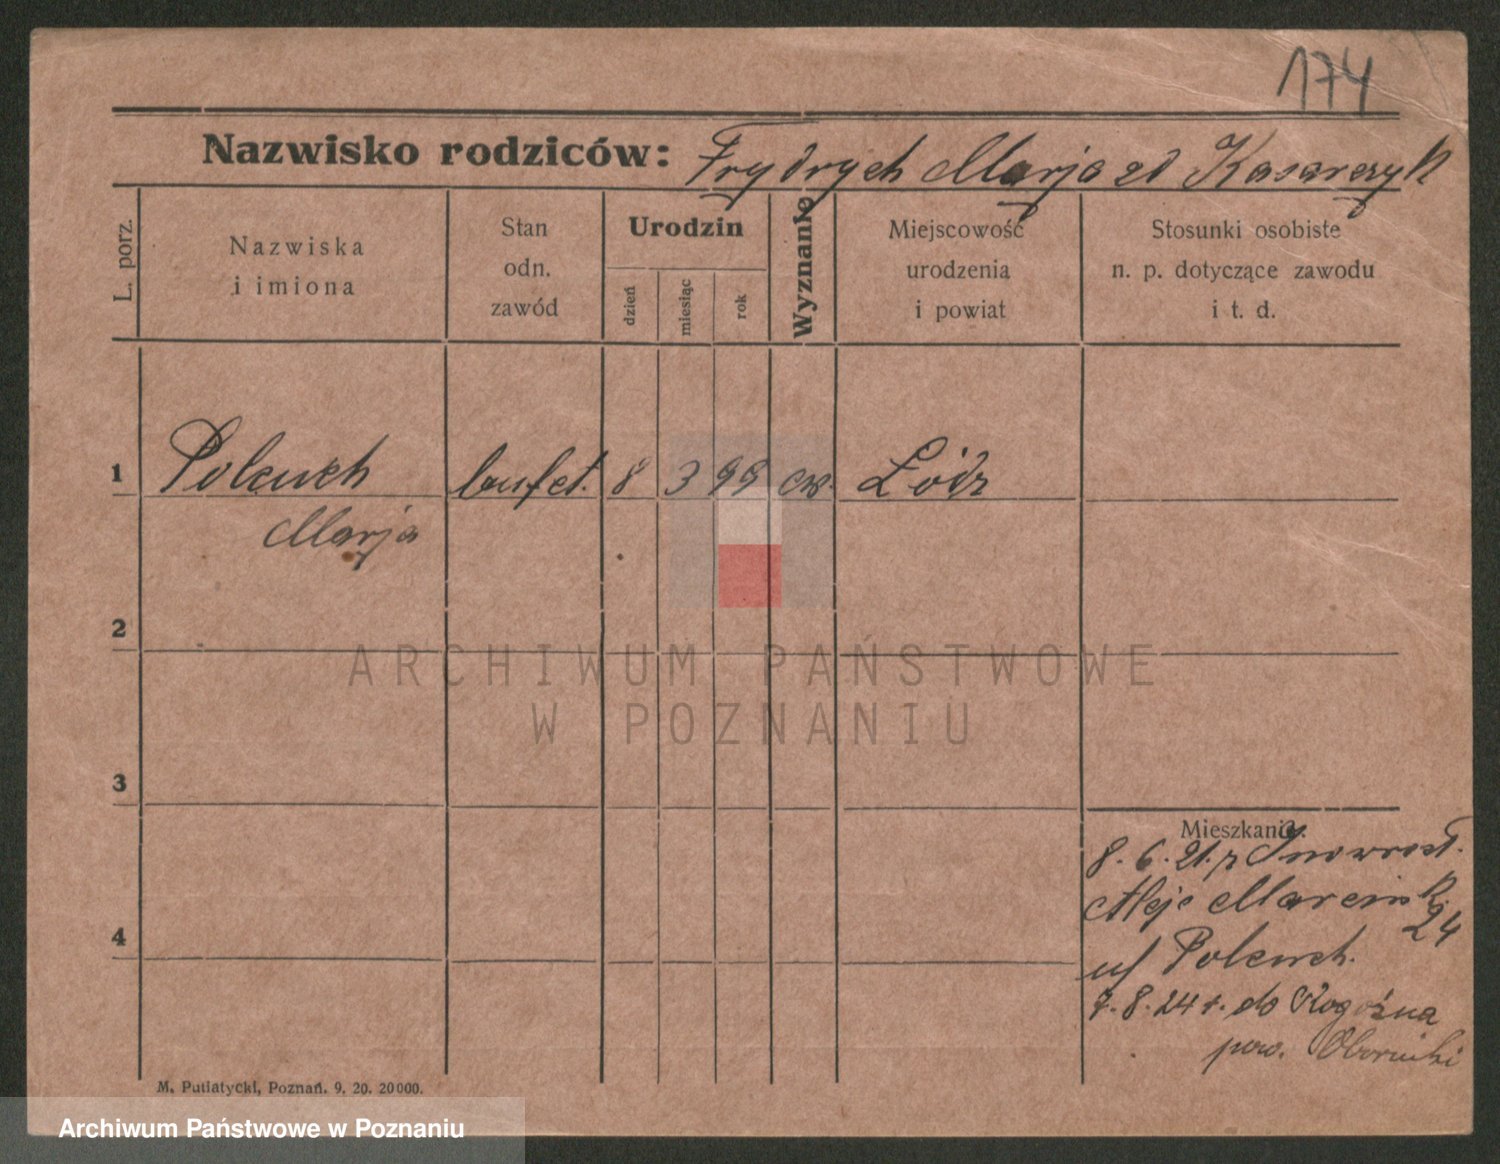 174
Nazwisko rodziców: Frydrych Marja zd Kasarczyk
L. porz.
Nazwiska
i imiona
Stan
odn.
zawód
Urodzin
dzień
miesiąc
rok
Wyznanie
Miejscowość
urodzenia
i powiat
Stosunki osobiste
n. p. dotyczące zawodu
i t. d.
1 bufet. 8 3 99 ew. Łódz
Marja
2
3
4
Mieszkanie.
8. 6. 21. z Inowrocł.
Aleje Marcink. 24
7. 8. 24 r. do Rogoźna
pow. Obornicki
M. Putiatycki, Poznań. 9. 20. 20000.
ARCHIWUM PAŃSTWOWE
W POZNANIU
Archiwum Państwowe w Poznaniu